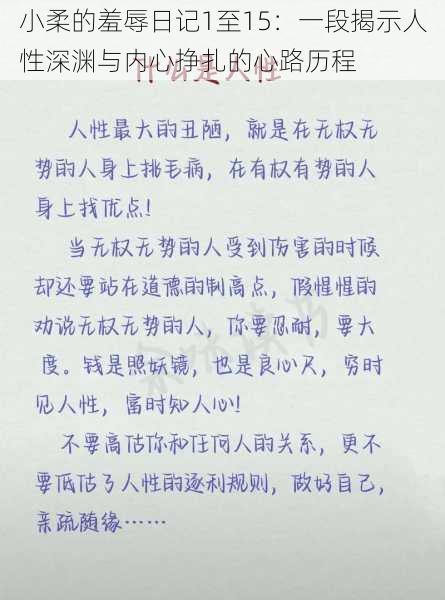 小柔的羞辱日记1至15：一段揭示人
性深渊与内心挣扎的心路历程
什么是人性
人性最大的丑陋，就是在无权无
势的人身上挑毛病，在有权有势的人
身上找优点！
当无权无势的人受到伤害的时候
却还要站在道德的制高点，假惺惺的
劝说无权无势的人，你要忍耐，要大
度。钱是照妖镜，也是良心尺，穷时
见人性，富时知人心！
不要高估你和任何人的关系，更不
要低估了人性的逐利规则，做好自己，
亲疏随缘……